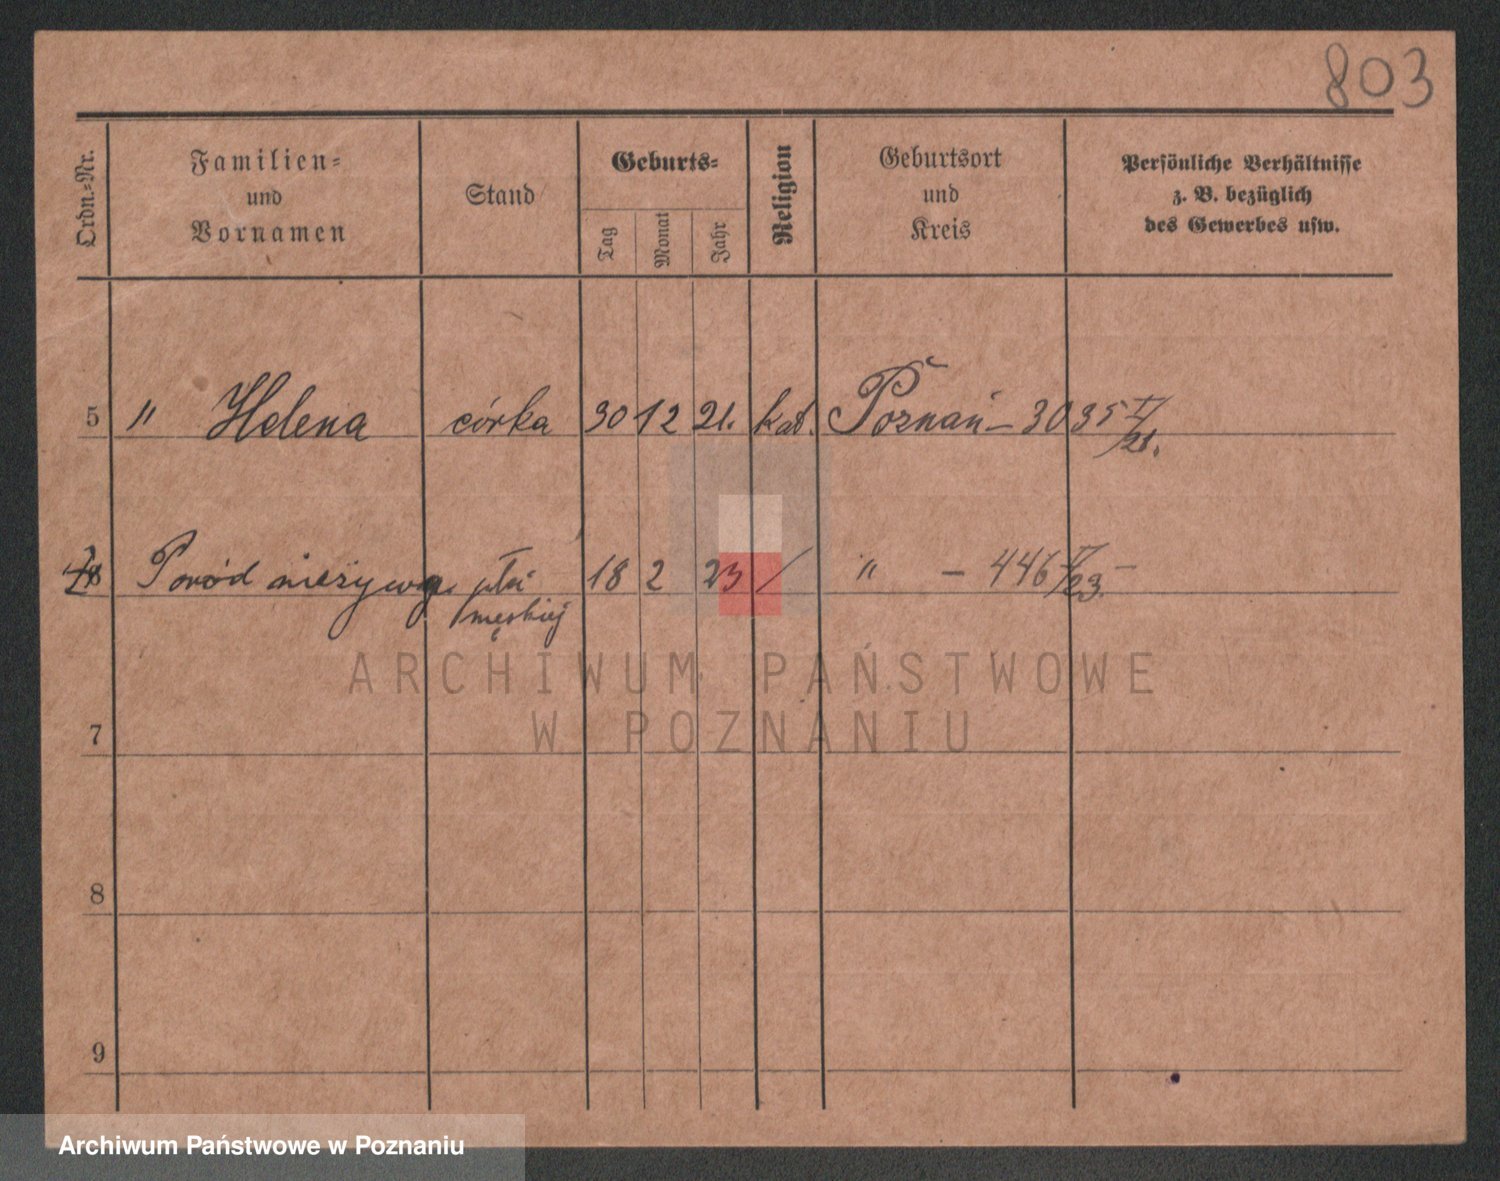 803
Ordn.=Nr.
Familien=
und
Vornamen
Stand
Geburts=
Tag
Monat
Jahr
Religion
Geburtsort
und
Kreis
Persönliche Verhältnisse
z. B. bezüglich
des Gewerbes usw.
5 " Helena córka 30 12 21. kat. Poznań – 3035 I/
21.
Poród nieżywy płci 18 2 23 / " – 446 I/23. –
męskiej
ARCHIWUM PAŃSTWOWE
W POZNANIU
7
8
9
Archiwum Państwowe w Poznaniu